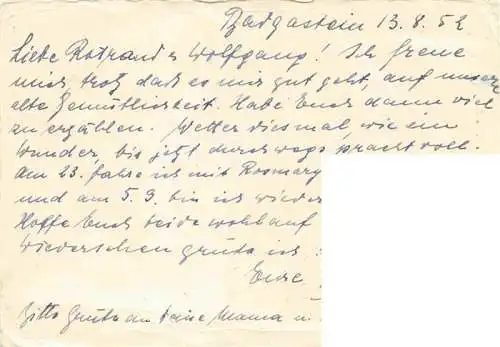 Badgastein 13.8.52
Liebe Rotraud & Wolfgang! Ich freue
mich, trotz daß es mir gut geht, auf unsere
alte Gemütlichkeit. Habe Euch dann viel
zu erzählen. Wetter diesmal, wie ein
Wunder, bis jetzt durchwegs prachtvoll.
Am 23. fahre ich mit Rosmary
und am 5.9. bin ich wieder
Hoffe Euch beide wohlauf
Wiedersehen grüße ich
Eure
Bitte Grüße an Deine Mama u.